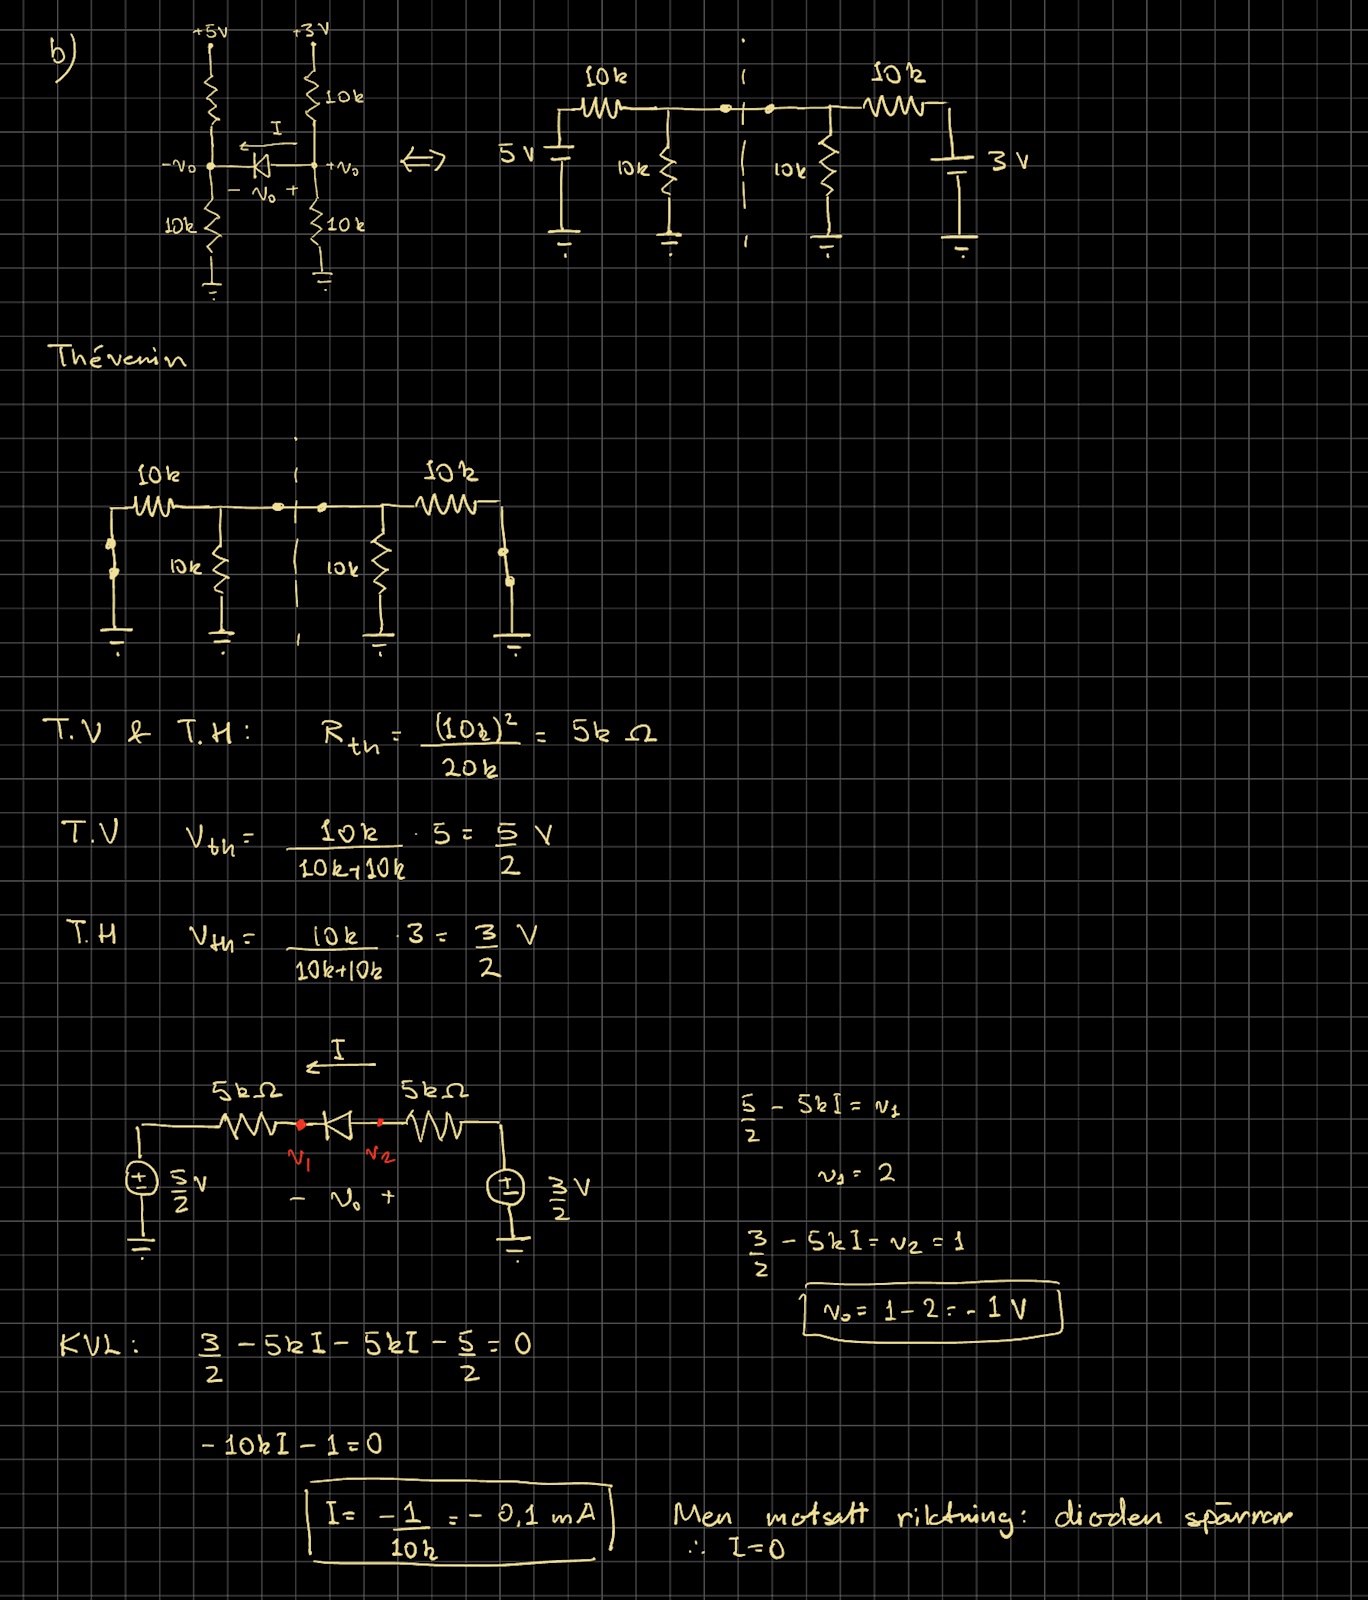 b)
+5V +3V
10k
I
-v₀ +v₀
- v₀ +
10k 10k
⇔
10k 10k
5 V 10k 10k 3 V
Thévenin
10k 10k
10k 10k
T.V & T.H: R_th = (10k)²/20k = 5k Ω
T.V V_th = 10k/(10k+10k) · 5 = 5/2 V
T.H V_th = 10k/(10k+10k) · 3 = 3/2 V
I
5kΩ 5kΩ
v₁ v₂
5/2 V - v₀ + 3/2 V
5/2 - 5kI = v₁
v₁ = 2
3/2 - 5kI = v₂ = 1
v₀ = 1 - 2 = - 1 V
KVL: 3/2 - 5kI - 5kI - 5/2 = 0
- 10kI - 1 = 0
I = -1/10k = - 0,1 mA
Men motsatt riktning: dioden spärrar
∴ I = 0